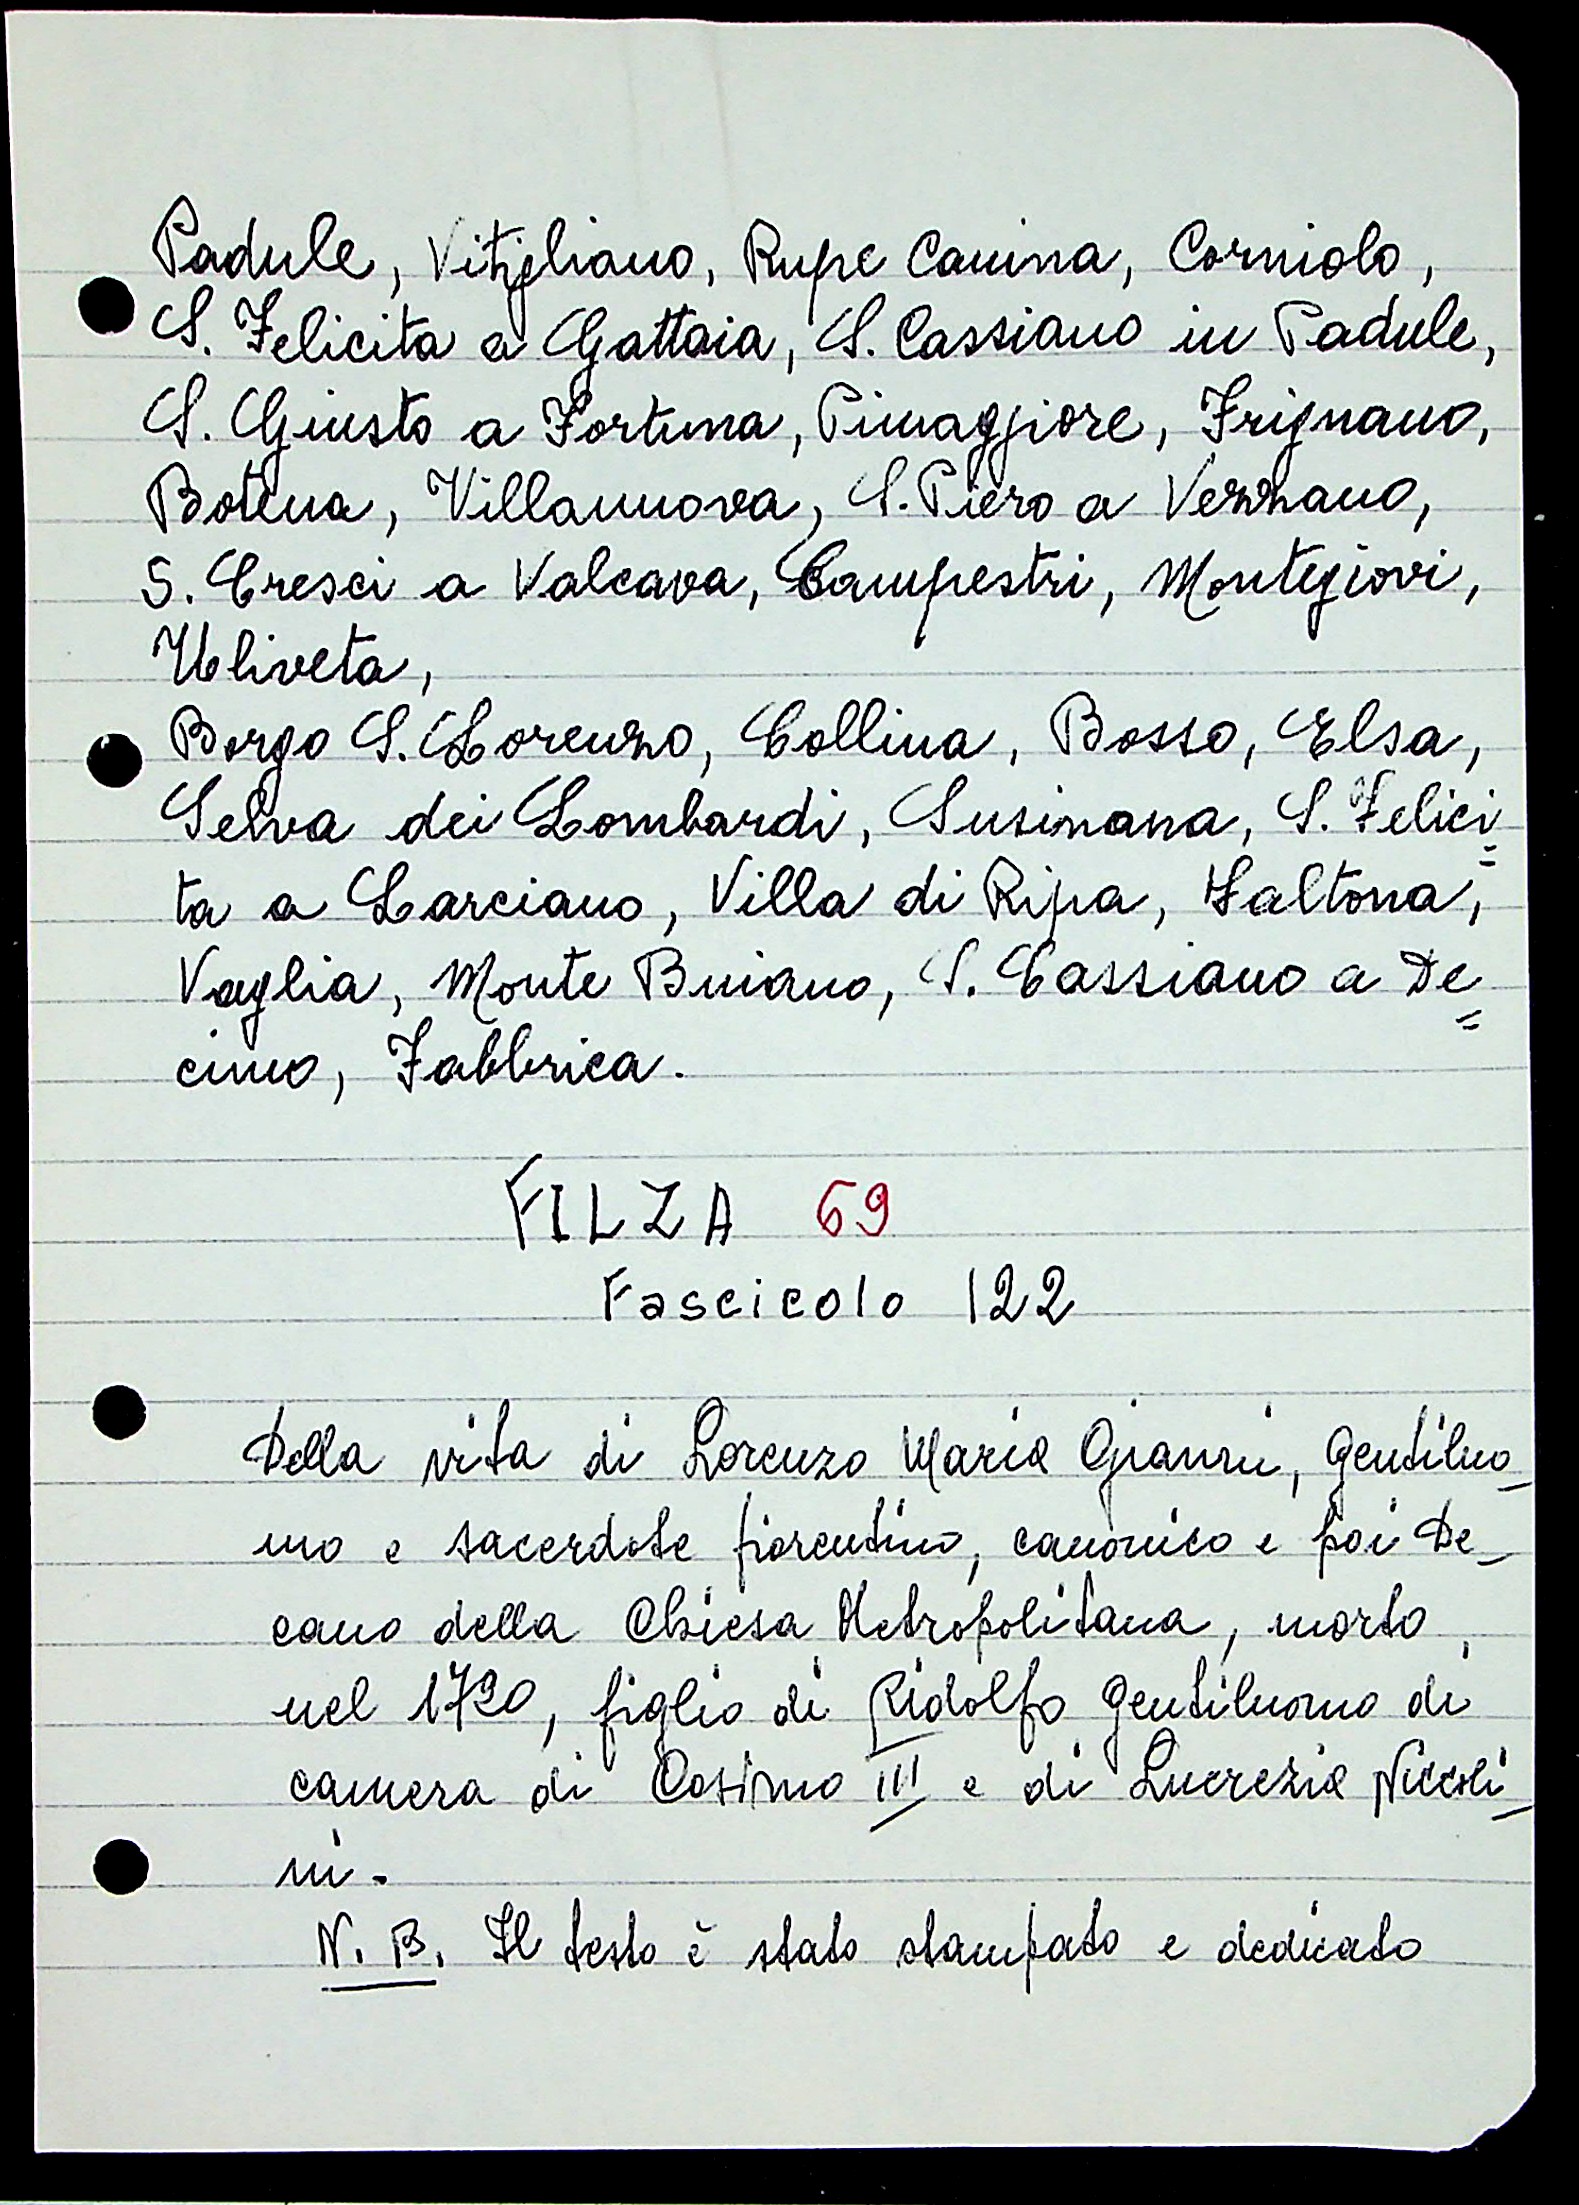 Padule, Vitigliano, Rupe Canina, Corniolo,
S. Felicita a Gattaia, S. Cassiano in Padule,
S. Giusto a Fortuna, Pimaggiore, Frignano,
Botena, Villanuova, S. Piero a Vezzano,
S. Cresci a Valcava, Campestri, Montegiovi,
Uliveta,
Borgo S. Lorenzo, Collina, Bosso, Elsa,
Selva dei Lombardi, Susinana, S. Felici=
ta a Larciano, Villa di Ripa, Faltona,
Vaglia, Monte Buiano, S. Cassiano a De=
cimo, Fabbrica.
FILZA 69
Fascicolo 122
Della vita di Lorenzo Maria Gianni, gentiluo_
mo e sacerdote fiorentino, canonico e poi De_
cano della Chiesa Metropolitana, morto,
nel 1720, figlio di Ridolfo gentiluomo di
camera di Cosimo III e di Lucrezia Niccoli_
ni.
N. B. Il testo è stato stampato e dedicato